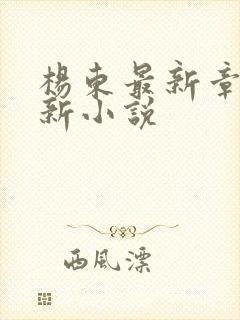 楊東最新章
新小說
西風漂